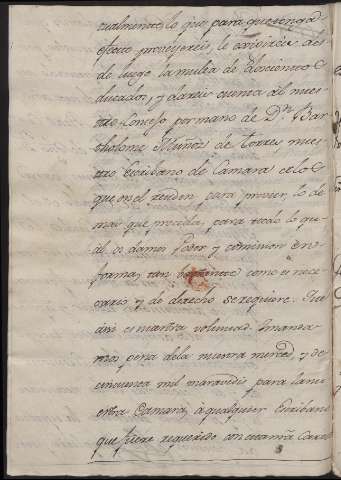 tualmente, lo que para que tenga
efecto proveyereis, le exigireis des
de luego la multa de doscientos
ducados, y dareis cuenta al nues
tro Consejo por mano de Dn. Bar
tholome Muñoz de Torres nues
tro Escribano de Camara de lo
que en el penden para proveer lo de
mas que proceda, para todo lo qu
al os damos Poder y comision en
forma, tan bastante como es nece
sario y de derecho se requiere. Que
asi es nuestra voluntad. Y manda
mos pena de la nuestra merced, y de
cincuenta mil maravedis para la nu
estra Camara, á qualquier Escribano
que fuere requerido con esta nra Carta